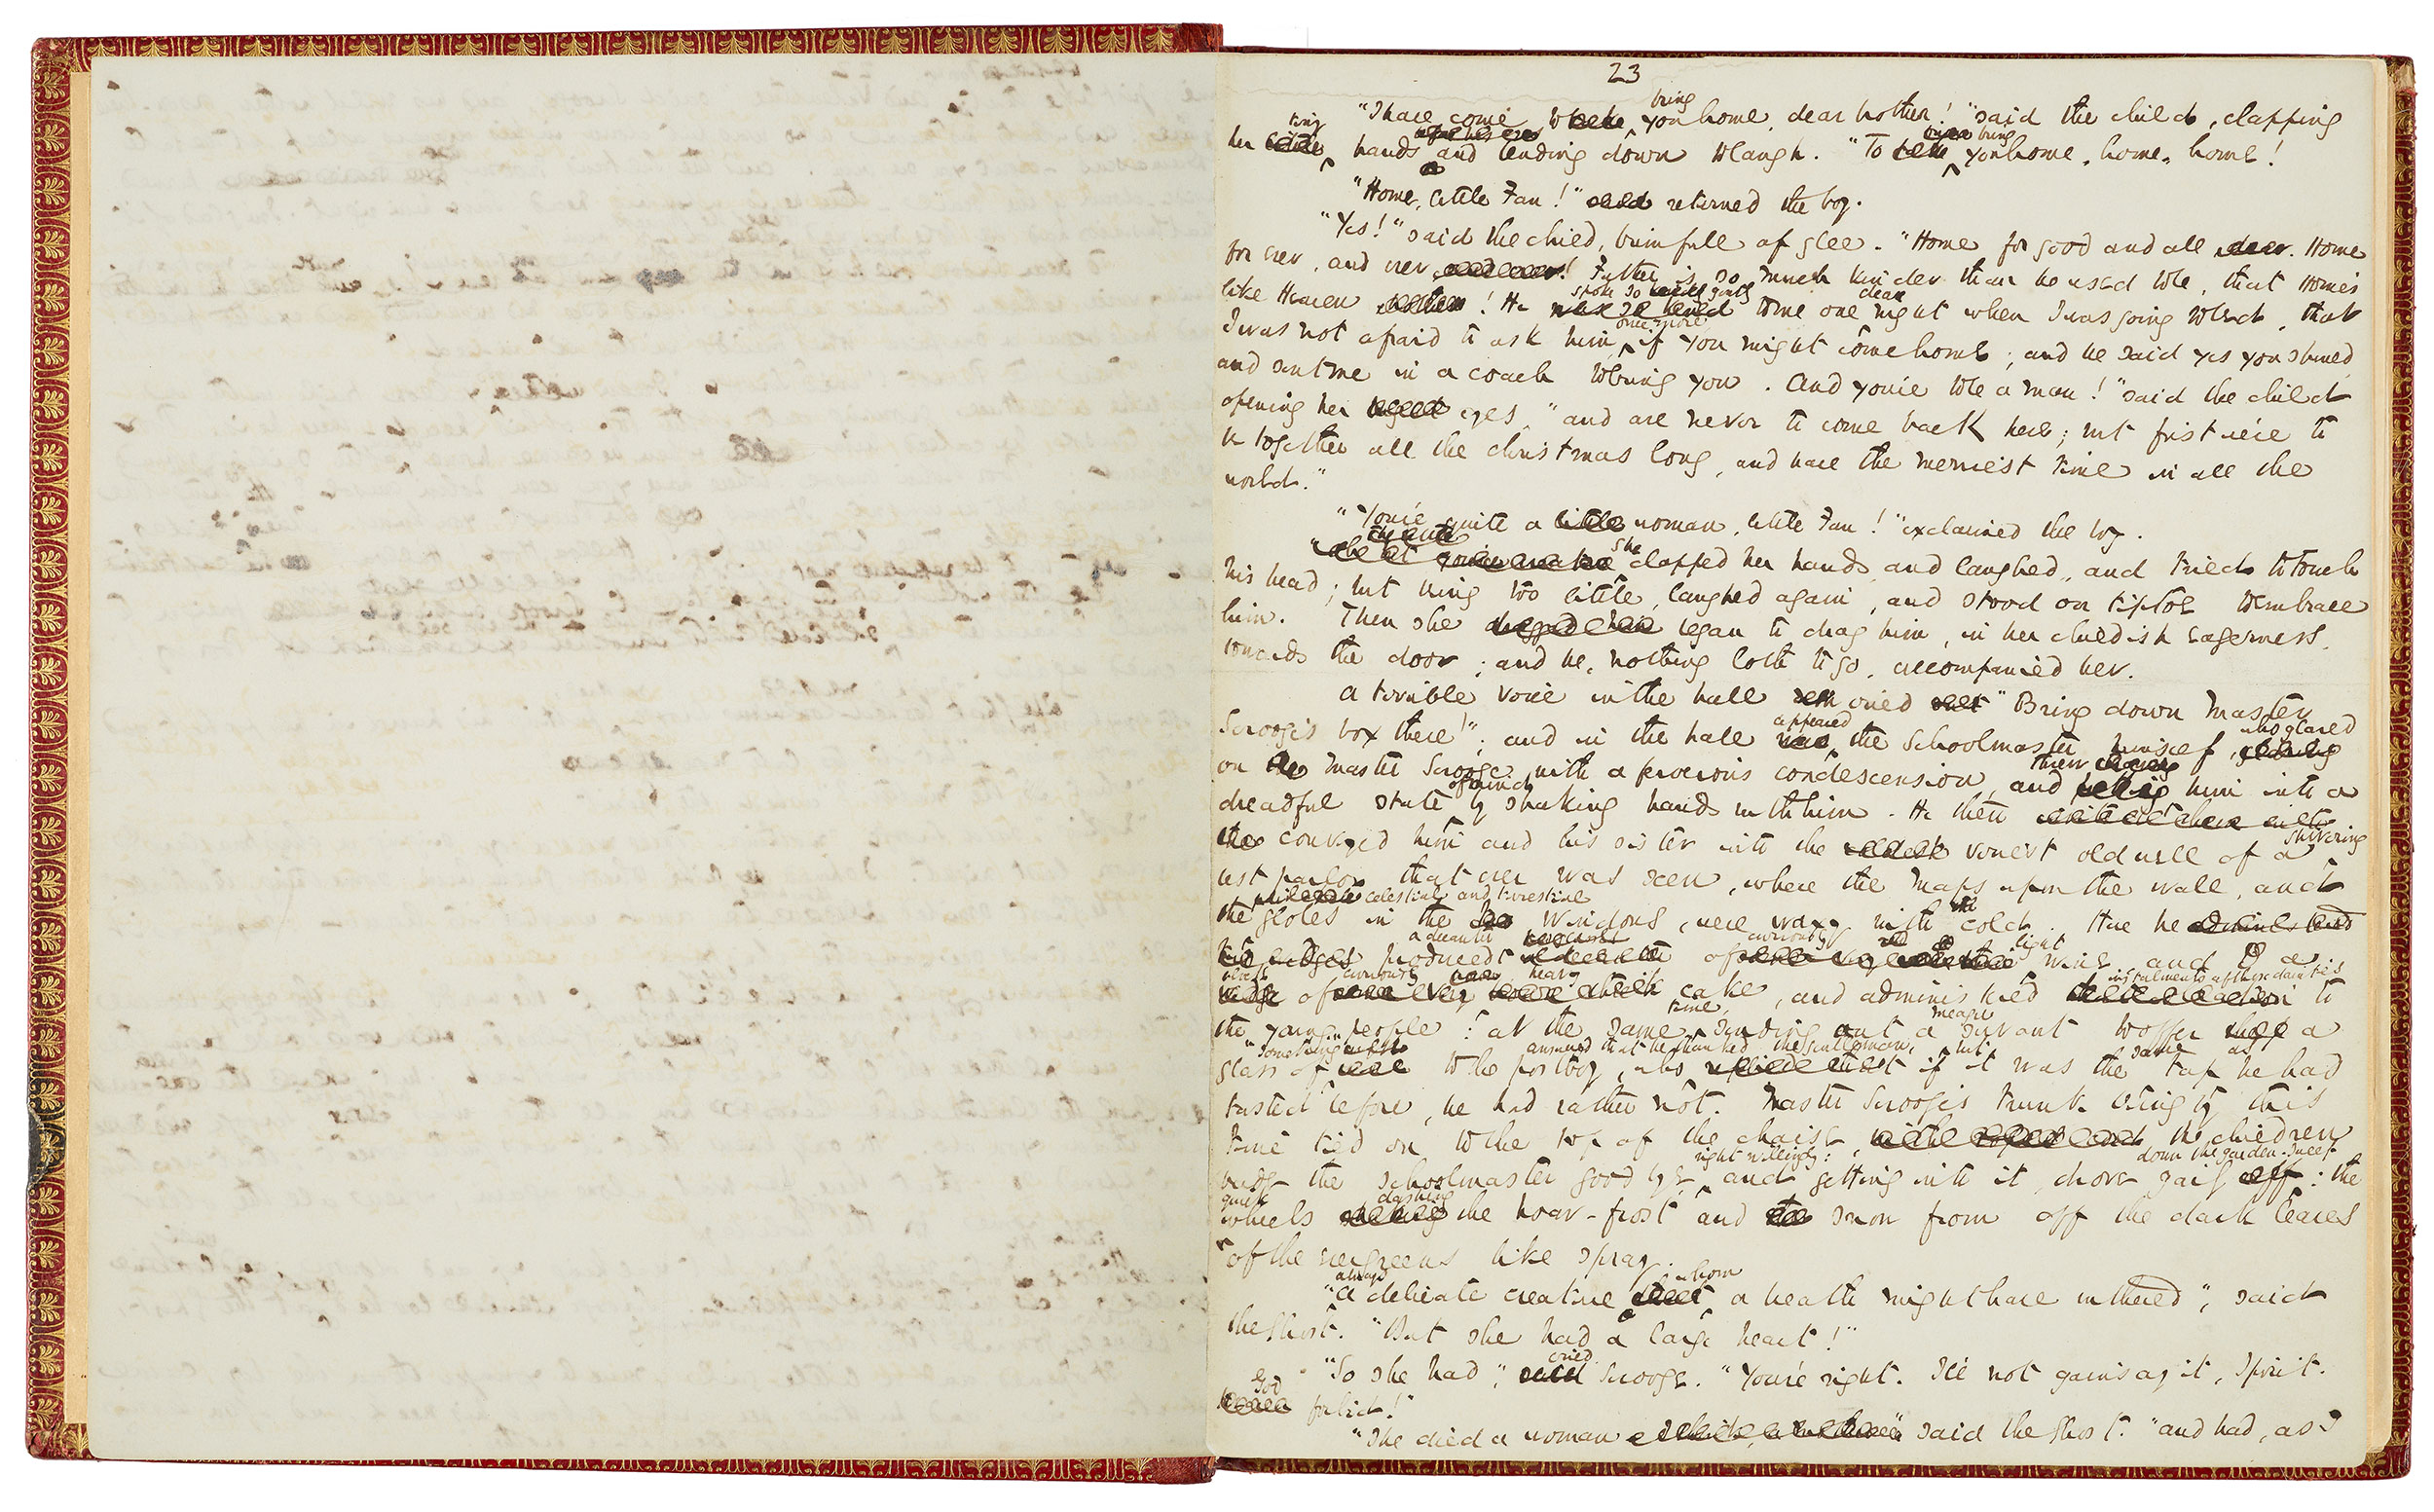 23
bring
"I have come to you home, dear brother!" said the child, clapping
tiny bring
her hands and bending down to laugh. "To you home, home, home!
"Home, little Fan!" returned the boy.
"Yes!" said the child, brimfull of glee. "Home for good and all. Home
for ever, and ever! Father is so much kinder than he used to be, that Home's
spoke so gently dear
like Heaven! He to me one night when I was going to bed, that
once more
I was not afraid to ask him if you might come home; and he said yes you should
and sent me in a coach to bring you. And you're to be a man!" said the child
opening her eyes, "and are never to come back here; but first we're to
be together all the Christmas long, and have the merriest time in all the
world."
"You're quite a woman, little Fan!" exclaimed the boy.
She clapped her hands and laughed, and tried to touch
his head; but being too little, laughed again, and stood on tiptoe to embrace
him. Then she began to drag him, in her childish eagerness,
towards the door; and he, nothing loth to go, accompanied her.
A terrible voice in the hall cried "Bring down Master
appeared
Scrooge's box there!"; and in the hall the Schoolmaster himself,
who glared
on Master Scrooge with a ferocious condescension, and
threw
of mind
him into a
dreadful state by shaking hands with him. He then
conveyed him and his sister into the veriest old well of a
shivering
best parlor that ever was seen, where the maps upon the wall, and
celestial and terrestrial
the globes in the windows, were waxy with cold. Here he
a decanter curiously light
produced of wine, and a
block curiously heavy instalments of those dainties
of cake, and administered to
time, meagre
the young people: at the same sending out a servant to offer a
"something" answered that he thanked the gentleman, but same as
glass of to the postboy, who if it was the tap he had
tasted before, he had rather not. Master Scrooge's trunk being by this
time tied on to the top of the chaise, the children
right willingly: down the garden-sweep
bade the schoolmaster good bye and getting into it, drove gaily: the
quick dashing
wheels the hoar-frost and snow from off the dark leaves
of the evergreens like spray.
always whom
"A delicate creature a breath might have withered", said
the Ghost. "But she had a large heart!"
cried
"So she had", Scrooge. "You're right. I'll not gainsay it, Spirit.
God
forbid!"
"She died a woman" said the Ghost. "and had, as I